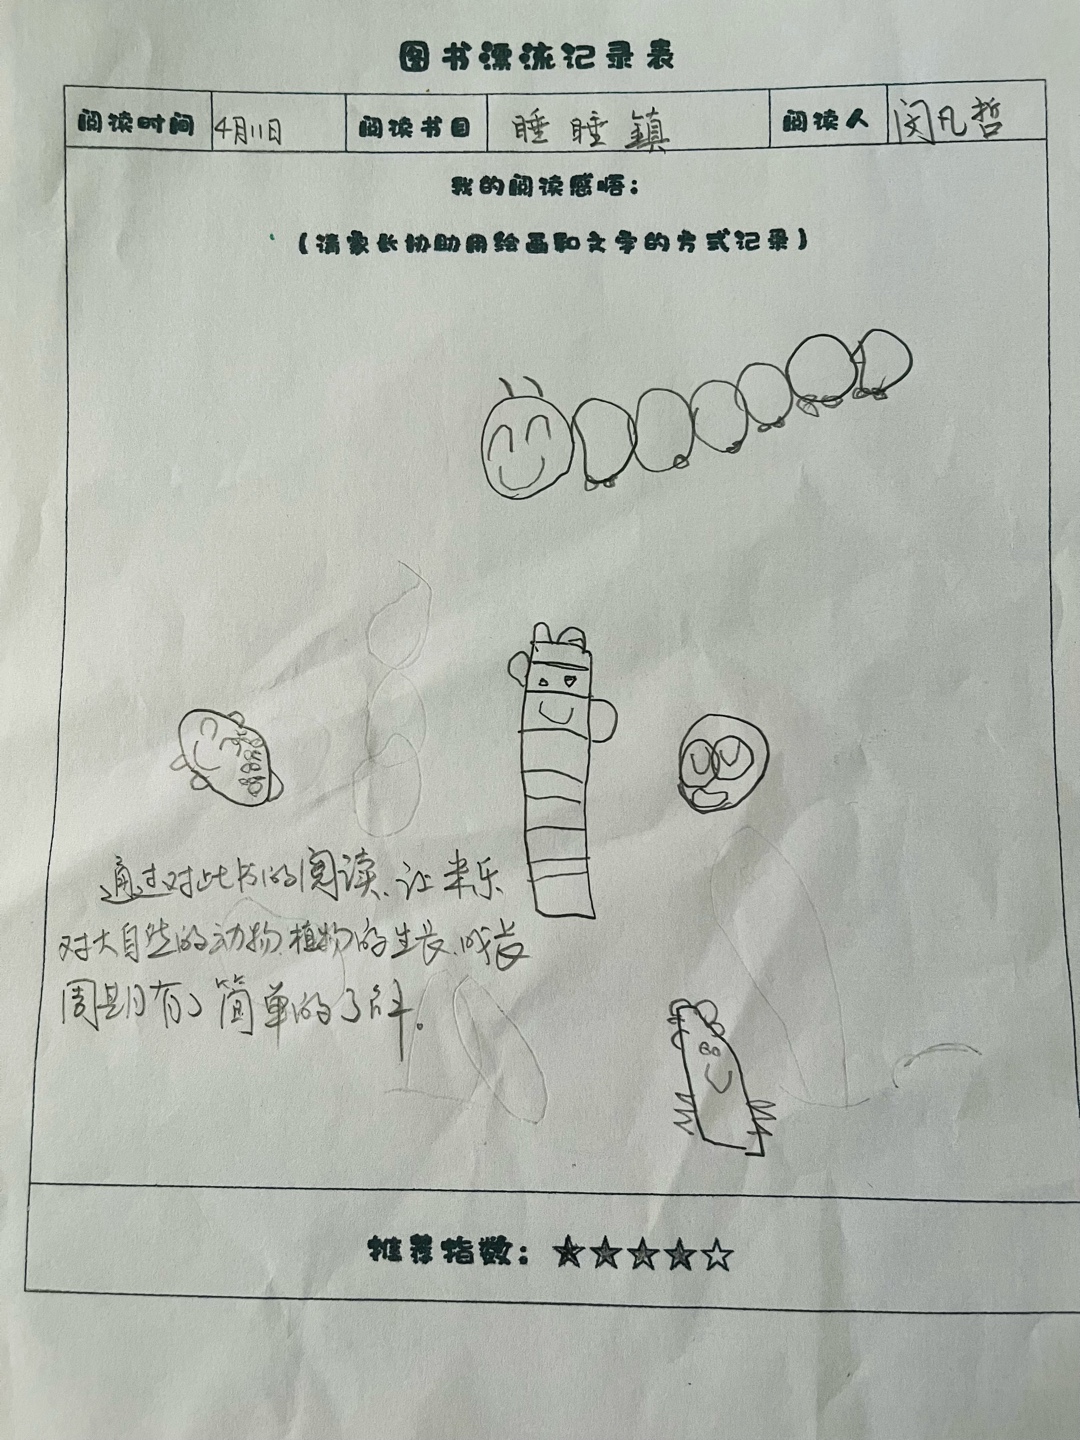 图书漂流记录表
阅读时间 4月11日 阅读书目 睡睡鎮 阅读人 闵凡哲
我的阅读感悟：
（请家长协助用绘画和文字的方式记录）
通过对此书的阅读、让米乐
对大自然的动物、植物的生长、成长
周期有了简单的了解。
推荐指数：★★★★☆